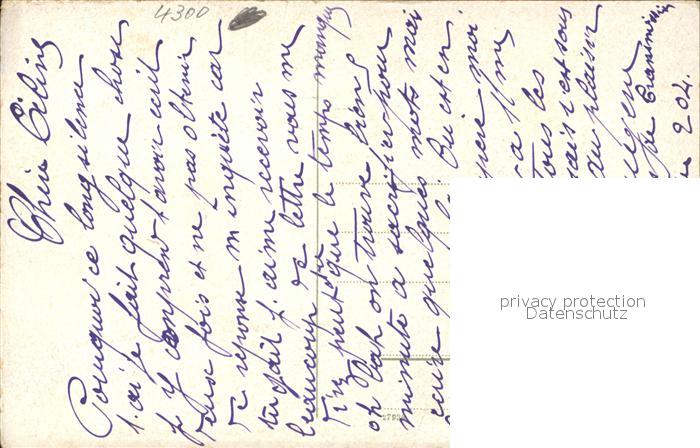 4300
Chère Céline
Pourquoi ce long silence
t'ai je fait quelque chose
j y comprend t'avoir écrit
deux fois et ne pas obtenir
de reponse m'inquiète car
tu sait j'aime recevoir
beaucoup de lettre vous me
dire peut que le temps manque
oh bah on trouve bien 5
minute a sacrifier pour
écrire quelques mots moi
Qui est en
moi
ca
Tous les
mais c'est sous
du plaisir
de
204
privacy protection
Datenschutz